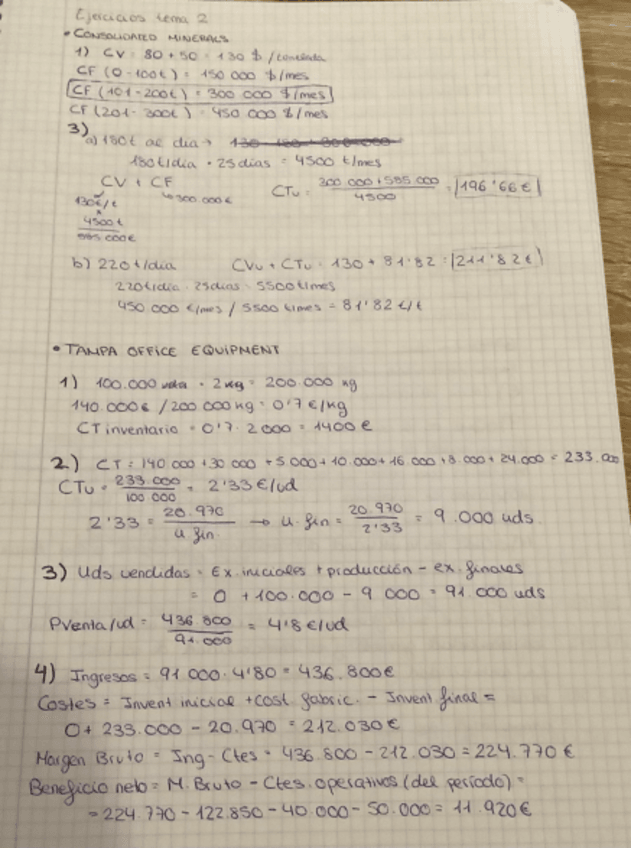 Ejercicios tema 2
• CONSOLIDATED MINERALS
1) CV = 80 + 50 = 130 $ / tonelada
CF (0-100t) = 150 000 $/mes
CF (101-200t) = 300 000 $/mes
CF (201-300t) = 450 000 $/mes
3)
a) 180t al dia →
180t/dia · 25 dias = 4500 t/mes
CV + CF
130€/t
↳ 300.000€
4500t
585.000€
CTu = 300 000 + 585 000 / 4500 = 196'66€
b) 220t/dia CVu + CTu = 130 + 81'82 = 211'82€
220t/dia · 25dias = 5500t/mes
450 000 €/mes / 5500 t/mes = 81'82 €/t
• TAMPA OFFICE EQUIPMENT
1) 100.000 uds · 2kg = 200.000 kg
140.000€ / 200 000kg = 0'7 €/kg
CT inventario = 0'7 · 2000 = 1400€
2.) CT = 140 000 + 30 000 + 5 000 + 10.000 + 16 000 + 8.000 + 24.000 = 233.000
CTu = 233.000 / 100 000 = 2'33€/ud
2'33 = 20.970 / u fin → u. fin = 20.970 / 2'33 = 9.000 uds.
3) Uds vendidas = Ex. iniciales + producción - ex. finales
= 0 + 100.000 - 9 000 = 91.000 uds
Pventa/ud = 436 800 / 91.000 = 4'8€/ud
4) Ingresos = 91 000 · 4'80 = 436.800€
Costes = Invent inicial + cost fabric. - Invent final =
0 + 233.000 - 20.970 = 212.030€
Margen Bruto = Ing - Ctes = 436.800 - 212.030 = 224.770€
Beneficio neto = M. Bruto - Ctes. operativos (del periodo) =
= 224.770 - 122.850 - 40.000 - 50.000 = 11.920€